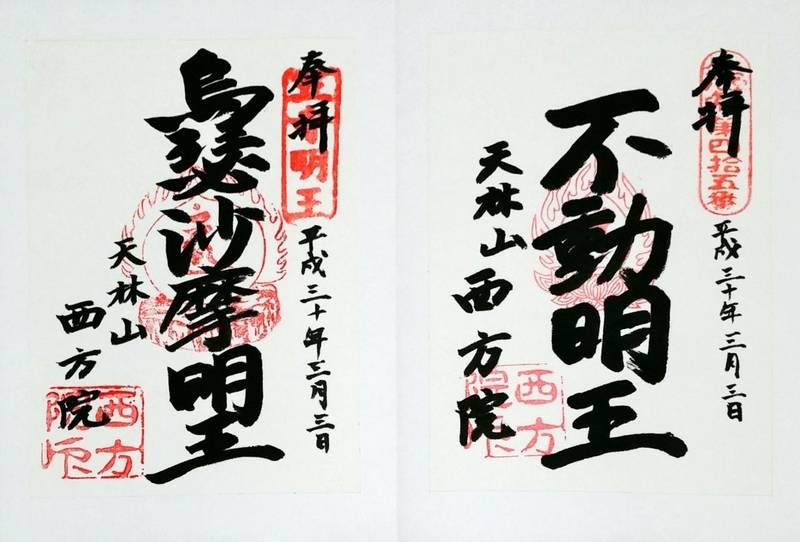 奉拝
不動明王
平成三十年三月三日
天林山
西方院
西方院印
奉拝
烏瑟沙摩明王
平成三十年三月三日
天林山
西方院
西方院印